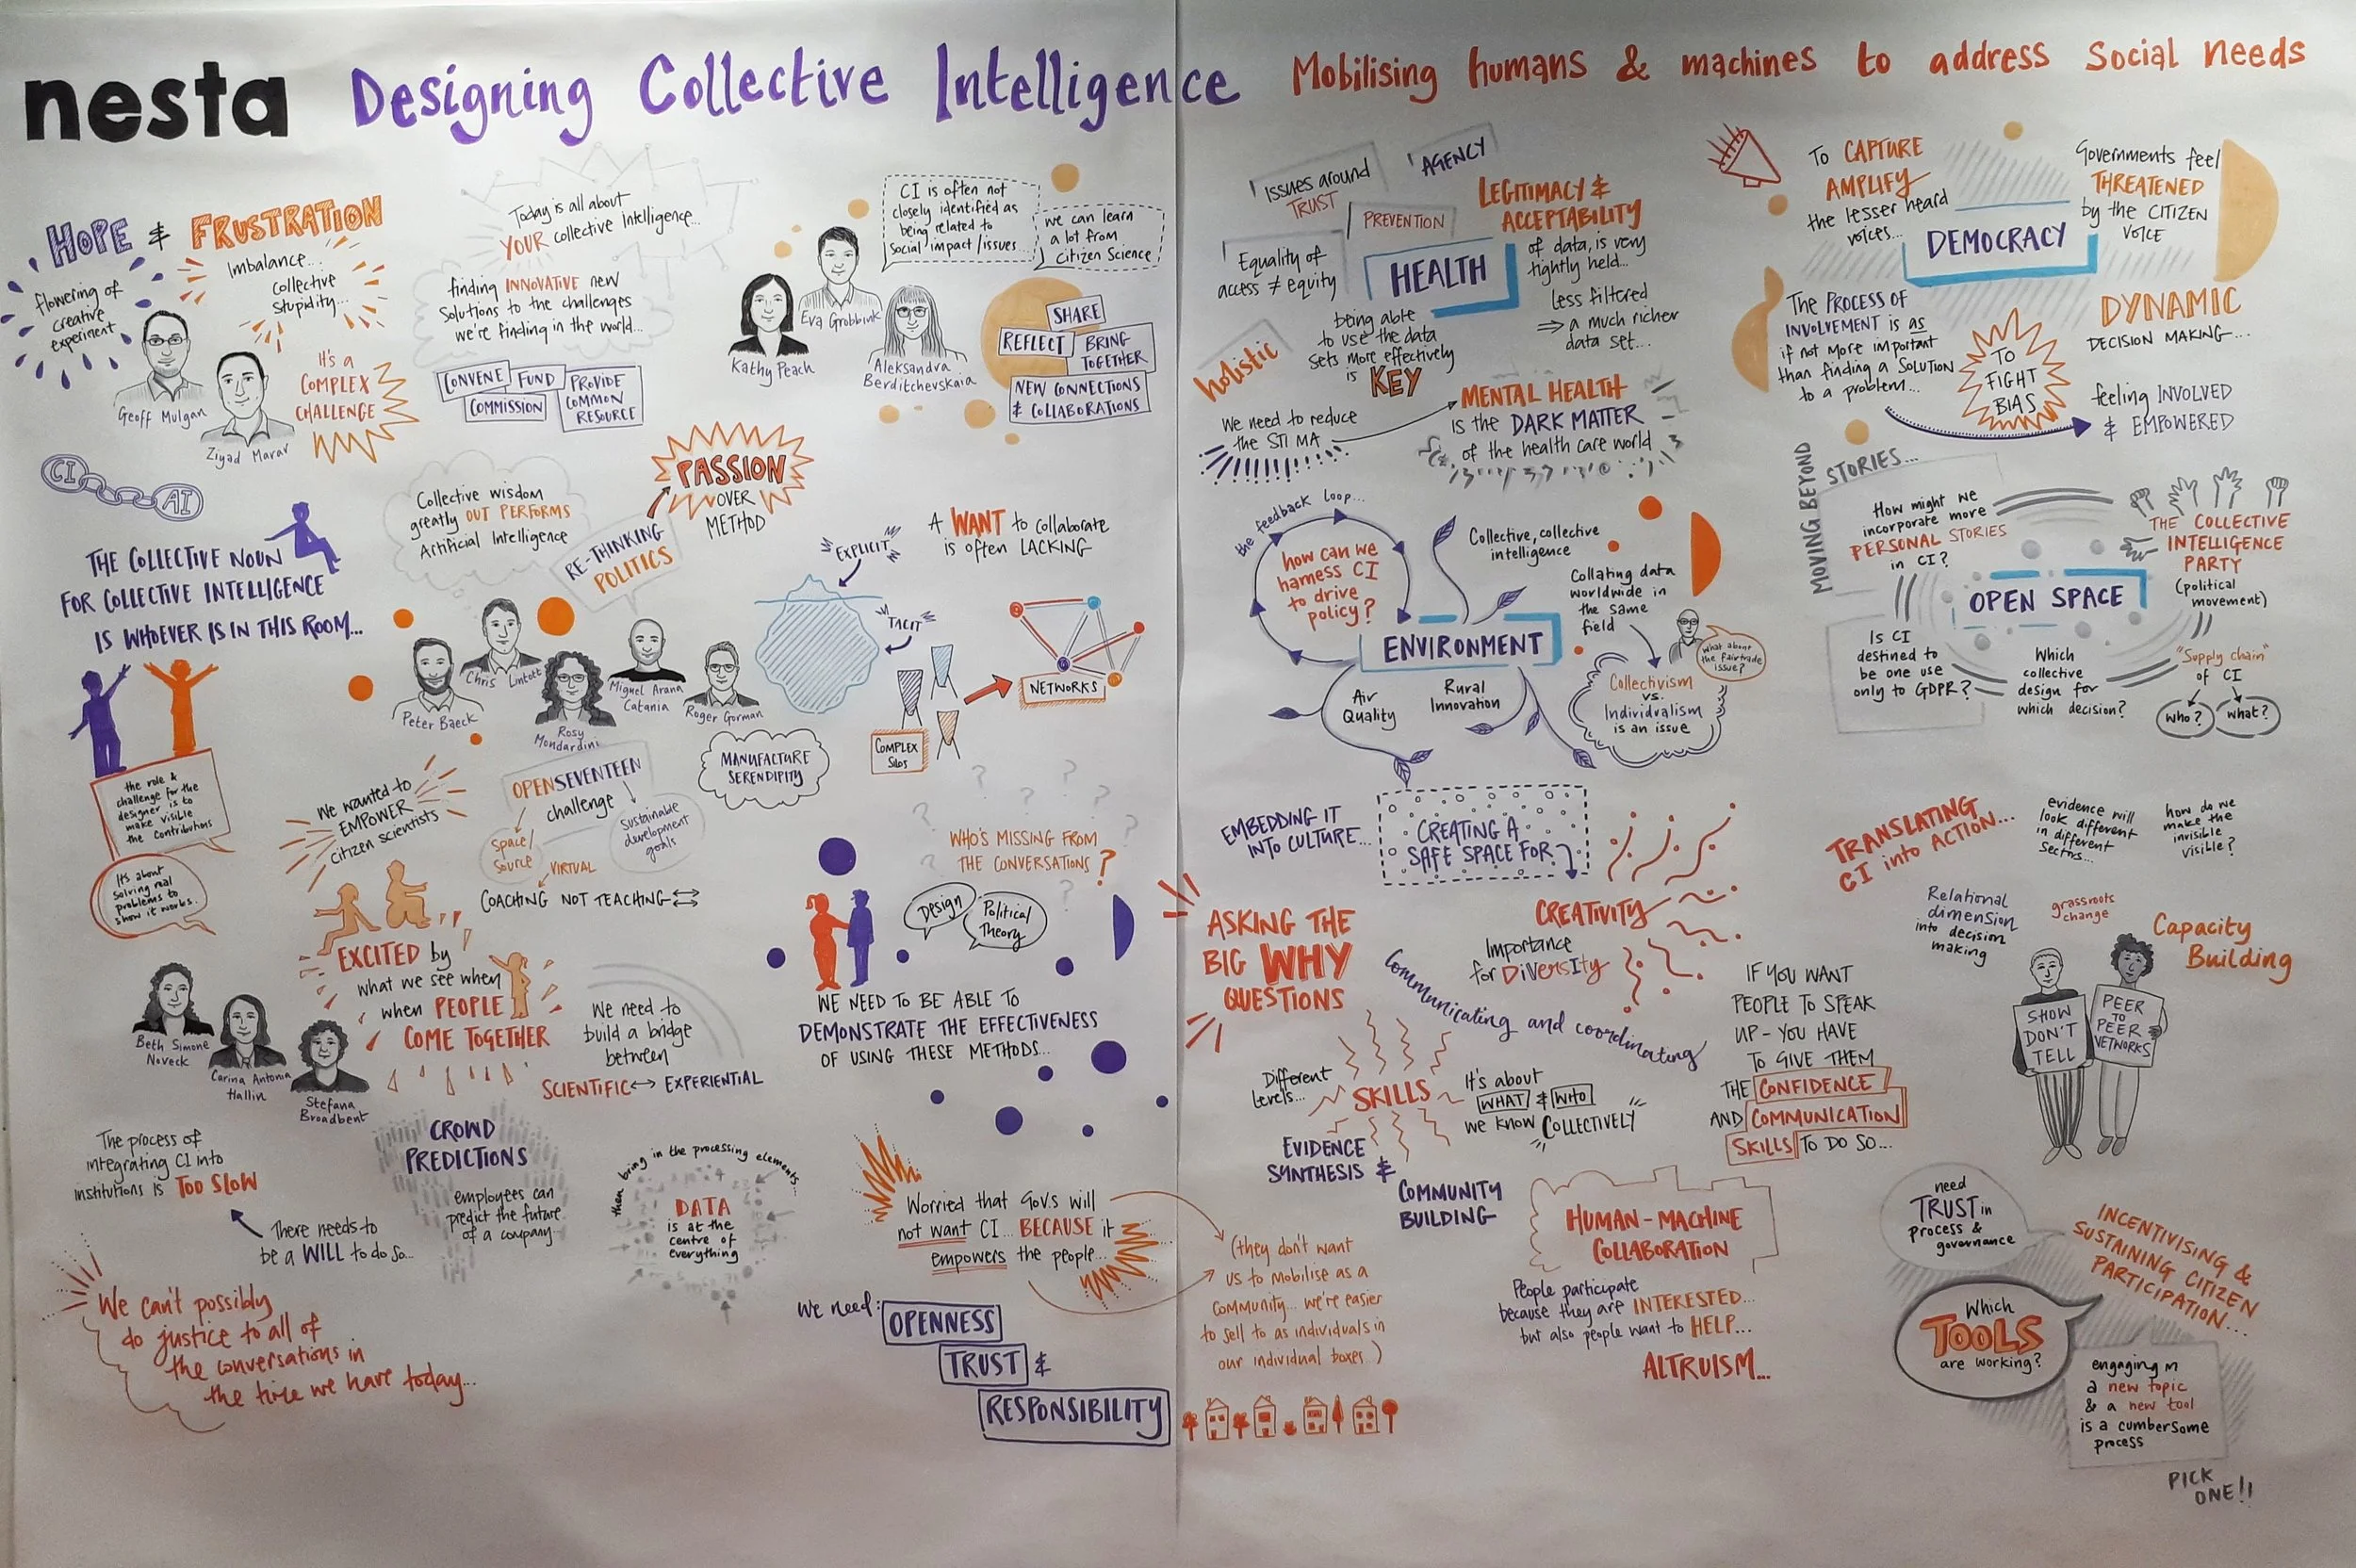 nesta Designing Collective Intelligence Mobilising humans & machines to address Social needs
HOPE & FRUSTRATION
flowering of
creative
experiment
Imbalance...
collective
Stupidity...
It's a
COMPLEX
CHALLENGE
Geoff Mulgan
Ziyad Marar
Today is all about
YOUR collective Intelligence...
finding INNOVATIVE new
Solutions to the challenges
we're finding in the world...
CONVENE
FUND
COMMISSION
PROVIDE
COMMON
RESOURCE
Kathy Peach
Eva Grobbink
Aleksandra
Berditchevskaia
CI is often not
closely identified as
being related to
social impact/issues...
we can learn
a lot from
Citizen Science
SHARE
REFLECT
BRING
TOGETHER
NEW CONNECTIONS
& COLLABORATIONS
CI
AI
THE COLLECTIVE NOUN
FOR COLLECTIVE INTELLIGENCE
IS WHOEVER IS IN THIS ROOM...
the role &
challenge for the
designer is to
make visible
the contributions
It's about
solving real
problems to
show it works.
Collective wisdom
greatly OUT PERFORMS
Artificial Intelligence
RE-THINKING
POLITICS
PASSION
OVER
METHOD
Peter Baeck
Chris Lintott
Rosy
Mondardini
Miguel Arana
Catania
Roger Gorman
EXPLICIT
TACIT
A WANT to collaborate
is often LACKING
COMPLEX
Silos
NETWORKS
MANUFACTURE
SERENDIPITY
We wanted to
EMPOWER
citizen scientists
OPENSEVENTEEN
challenge
Space/
Source
Sustainable
development
goals
VIRTUAL
COACHING NOT TEACHING
EXCITED by
what we see when
when PEOPLE
COME TOGETHER
We need to
build a bridge
between
SCIENTIFIC ↔ EXPERIENTIAL
Beth Simone
Noveck
Carina Antonia
Hallin
Stefana
Broadbent
WHO'S MISSING FROM
THE CONVERSATIONS?
Design
Political
Theory
WE NEED TO BE ABLE TO
DEMONSTRATE THE EFFECTIVENESS
OF USING THESE METHODS...
The process of
integrating CI into
institutions is TOO SLOW
There needs to
be a WILL to do so...
CROWD
PREDICTIONS
employees can
predict the future
of a company...
then bring in the processing elements...
DATA
is at the
centre of
everything
Worried that Gov.s will
not want CI... BECAUSE it
empowers the people...
(they don't want
us to mobilise as a
community... we're easier
to sell to as individuals in
our individual boxes.)
We need:
OPENNESS
TRUST &
RESPONSIBILITY
We can't possibly
do justice to all of
the conversations in
the time we have today...
Issues around
TRUST
AGENCY
PREVENTION
LEGITIMACY &
ACCEPTABILITY
of data, is very
tightly held...
less filtered
⇒ a much richer
data set...
Equality of
access ≠ equity
HEALTH
holistic
being able
to use the data
sets more effectively
is KEY
We need to reduce
the STI MA
MENTAL HEALTH
is the DARK MATTER
of the health care world
To CAPTURE
AMPLIFY
the lesser heard
voices...
Governments feel
THREATENED
by the CITIZEN
VOICE
DEMOCRACY
The PROCESS OF
INVOLVEMENT is as
if not More important
than finding a SOLUTION
to a problem...
TO
FIGHT
BIAS
DYNAMIC
DECISION MAKING...
feeling INVOLVED
& EMPOWERED
the feedback loop...
how can we
harness CI
to drive
policy?
Collective, collective
intelligence
Collating data
worldwide in
the same
field
ENVIRONMENT
What about
the fairtrade
issue?
Collectivism
vs.
Individualism
is an issue
Air
Quality
Rural
Innovation
MOVING BEYOND
STORIES...
How might we
incorporate more
PERSONAL STORIES
in CI?
THE COLLECTIVE
INTELLIGENCE
PARTY
(political
movement)
OPEN SPACE
Is CI
destined to
be one use
only to GDPR?
Which
collective
design for
which decision?
"Supply chain"
of CI
who?
what?
EMBEDDING IT
INTO CULTURE...
CREATING A
SAFE SPACE FOR
CREATIVITY
Importance
for DiVERSItY
ASKING THE
BIG WHY
QUESTIONS
Communicating and coordinating
Different
levels...
SKILLS
It's about
WHAT & WHO
we know COLLECTIVELY
EVIDENCE
SYNTHESIS &
COMMUNITY
BUILDING
IF YOU WANT
PEOPLE TO SPEAK
UP - YOU HAVE
TO GIVE THEM
THE CONFIDENCE
AND COMMUNICATION
SKILLS TO DO SO...
HUMAN-MACHINE
COLLABORATION
People participate
because they are INTERESTED...
but also people want to HELP...
ALTRUISM...
TRANSLATING
CI into ACTION...
evidence will
look different
in different
Sectors...
how do we
make the
invisible
visible?
Relational
dimension
into decision
making
grassroots
change
Capacity
Building
SHOW
DON'T
TELL
PEER
TO
PEER
NETWORKS
need
TRUST in
process &
governance
INCENTIVISING &
SUSTAINING CITIZEN
PARTICIPATION...
Which
TOOLS
are working?
engaging in
a new topic
& a new tool
is a cumbersome
process
PICK
ONE!!